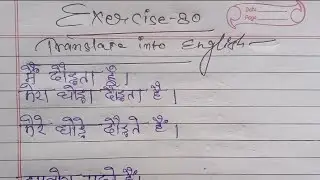 Exercise-20
Date
Page
Translate into English-
मैं दौड़ता हूँ।
मेरा घोड़ा दौड़ता है।
मेरे घोड़े दौड़ते हैं।